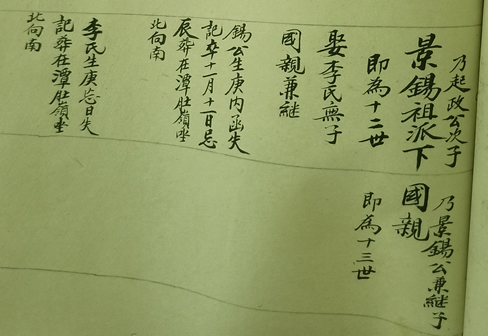 乃起政公次子
景錫祖派下
即為十二世
娶李氏無子
國親兼継
錫公生庚内函失
記卒十一月十一日忌
辰葬在潭肚嶺坐
北向南
李氏生庚忌日失
記葬在潭肚嶺坐
北向南
乃景錫公兼継子
國親
即為十三世